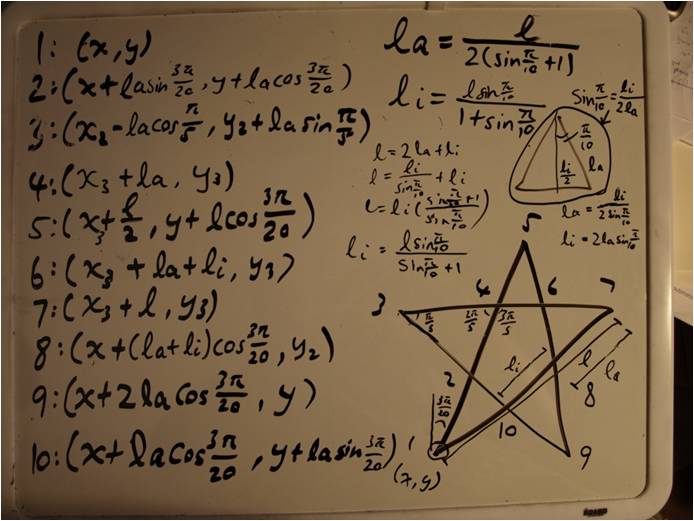 1: (x,y)
2: (x+la sin 3π/20, y+la cos 3π/20)
3: (x₂-la cos π/5, y₂+la sin π/5)
4: (x₃+la, y₃)
5: (x₃+l/2, y+l cos 3π/20)
6: (x₃+la+li, y₃)
7: (x₃+l, y₃)
8: (x+(la+li)cos 3π/20, y₂)
9: (x+2la cos 3π/20, y)
10: (x+la cos 3π/20, y+la sin 3π/20)
la = l/2(sin π/10 +1)
li = l sin π/10 / 1+sin π/10
l=2la+li
l= li/sin π/10 + li
l=li(sin π/10 +1/sin π/10)
li = l sin π/10 / sin π/10 +1
Sin π/10 = li/2la
π/10
li/2
la
la = li/2 sin π/10
li=2la sin π/10
5
3
4
6
7
π/5
2π/5
3π/5
li
l
la
2
8
3π/20
1
10
9
(x,y)